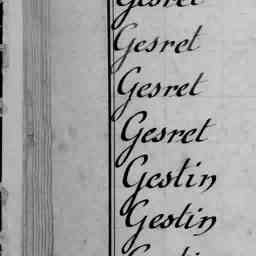 Gesret
Gesret
Gesret
Gesret
Gestin
Gestin